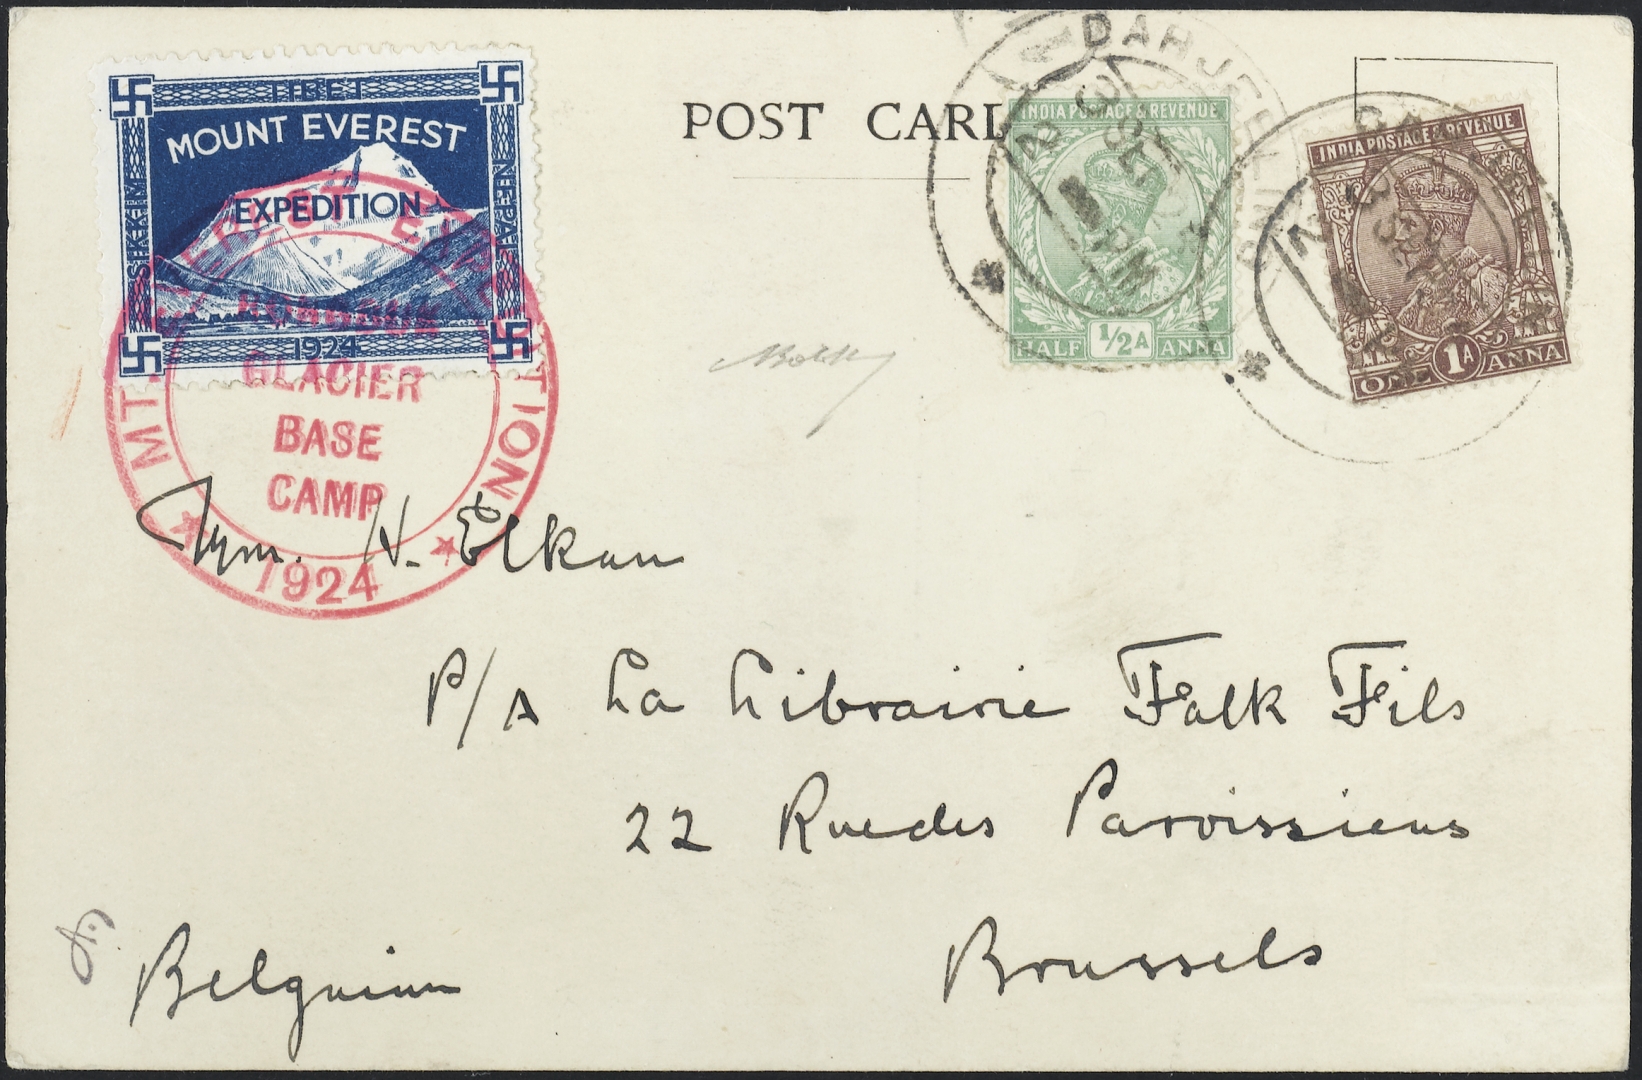 TIBET
MOUNT EVEREST
EXPEDITION
SIKKIM
NEPAL
1924
MT
GLACIER
BASE
CAMP
1924
POST CARD
INDIA POSTAGE & REVENUE
HALF 1/2A ANNA
INDIA POSTAGE & REVENUE
ONE 1A ANNA
Wm. H. Elkan
P/A La Librairie Falk Fils
22 Rue des Paroissiens
Brussels
Belguium